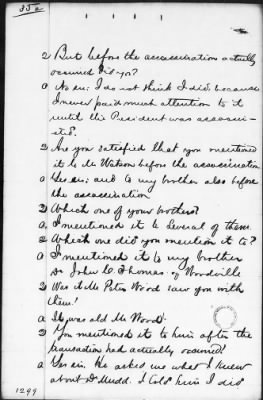 35a
Q But before the assassination actually
occurred did you?
A No sir; I do not think I did, because
I never paid much attention to it
until the President was assassin-
ated.
Q Are you satisfied that you mentioned
it to Mr Watson before the assassination
A Yes sir; and to my brother also before
the assassination
Q Which one of your brothers?
A I mentioned it to several of them.
Q Which one did you mention it to?
A I mentioned it to my brother
Dr John C. Thomas of Woodville
Q Was it Mr Peter Wood saw you with
them?
A It was old Mr Wood.
Q You mentioned it to him after the
transaction had actually occurred?
A Yes sir. He asked me what I knew
about Dr Mudd. I told him I did
1299